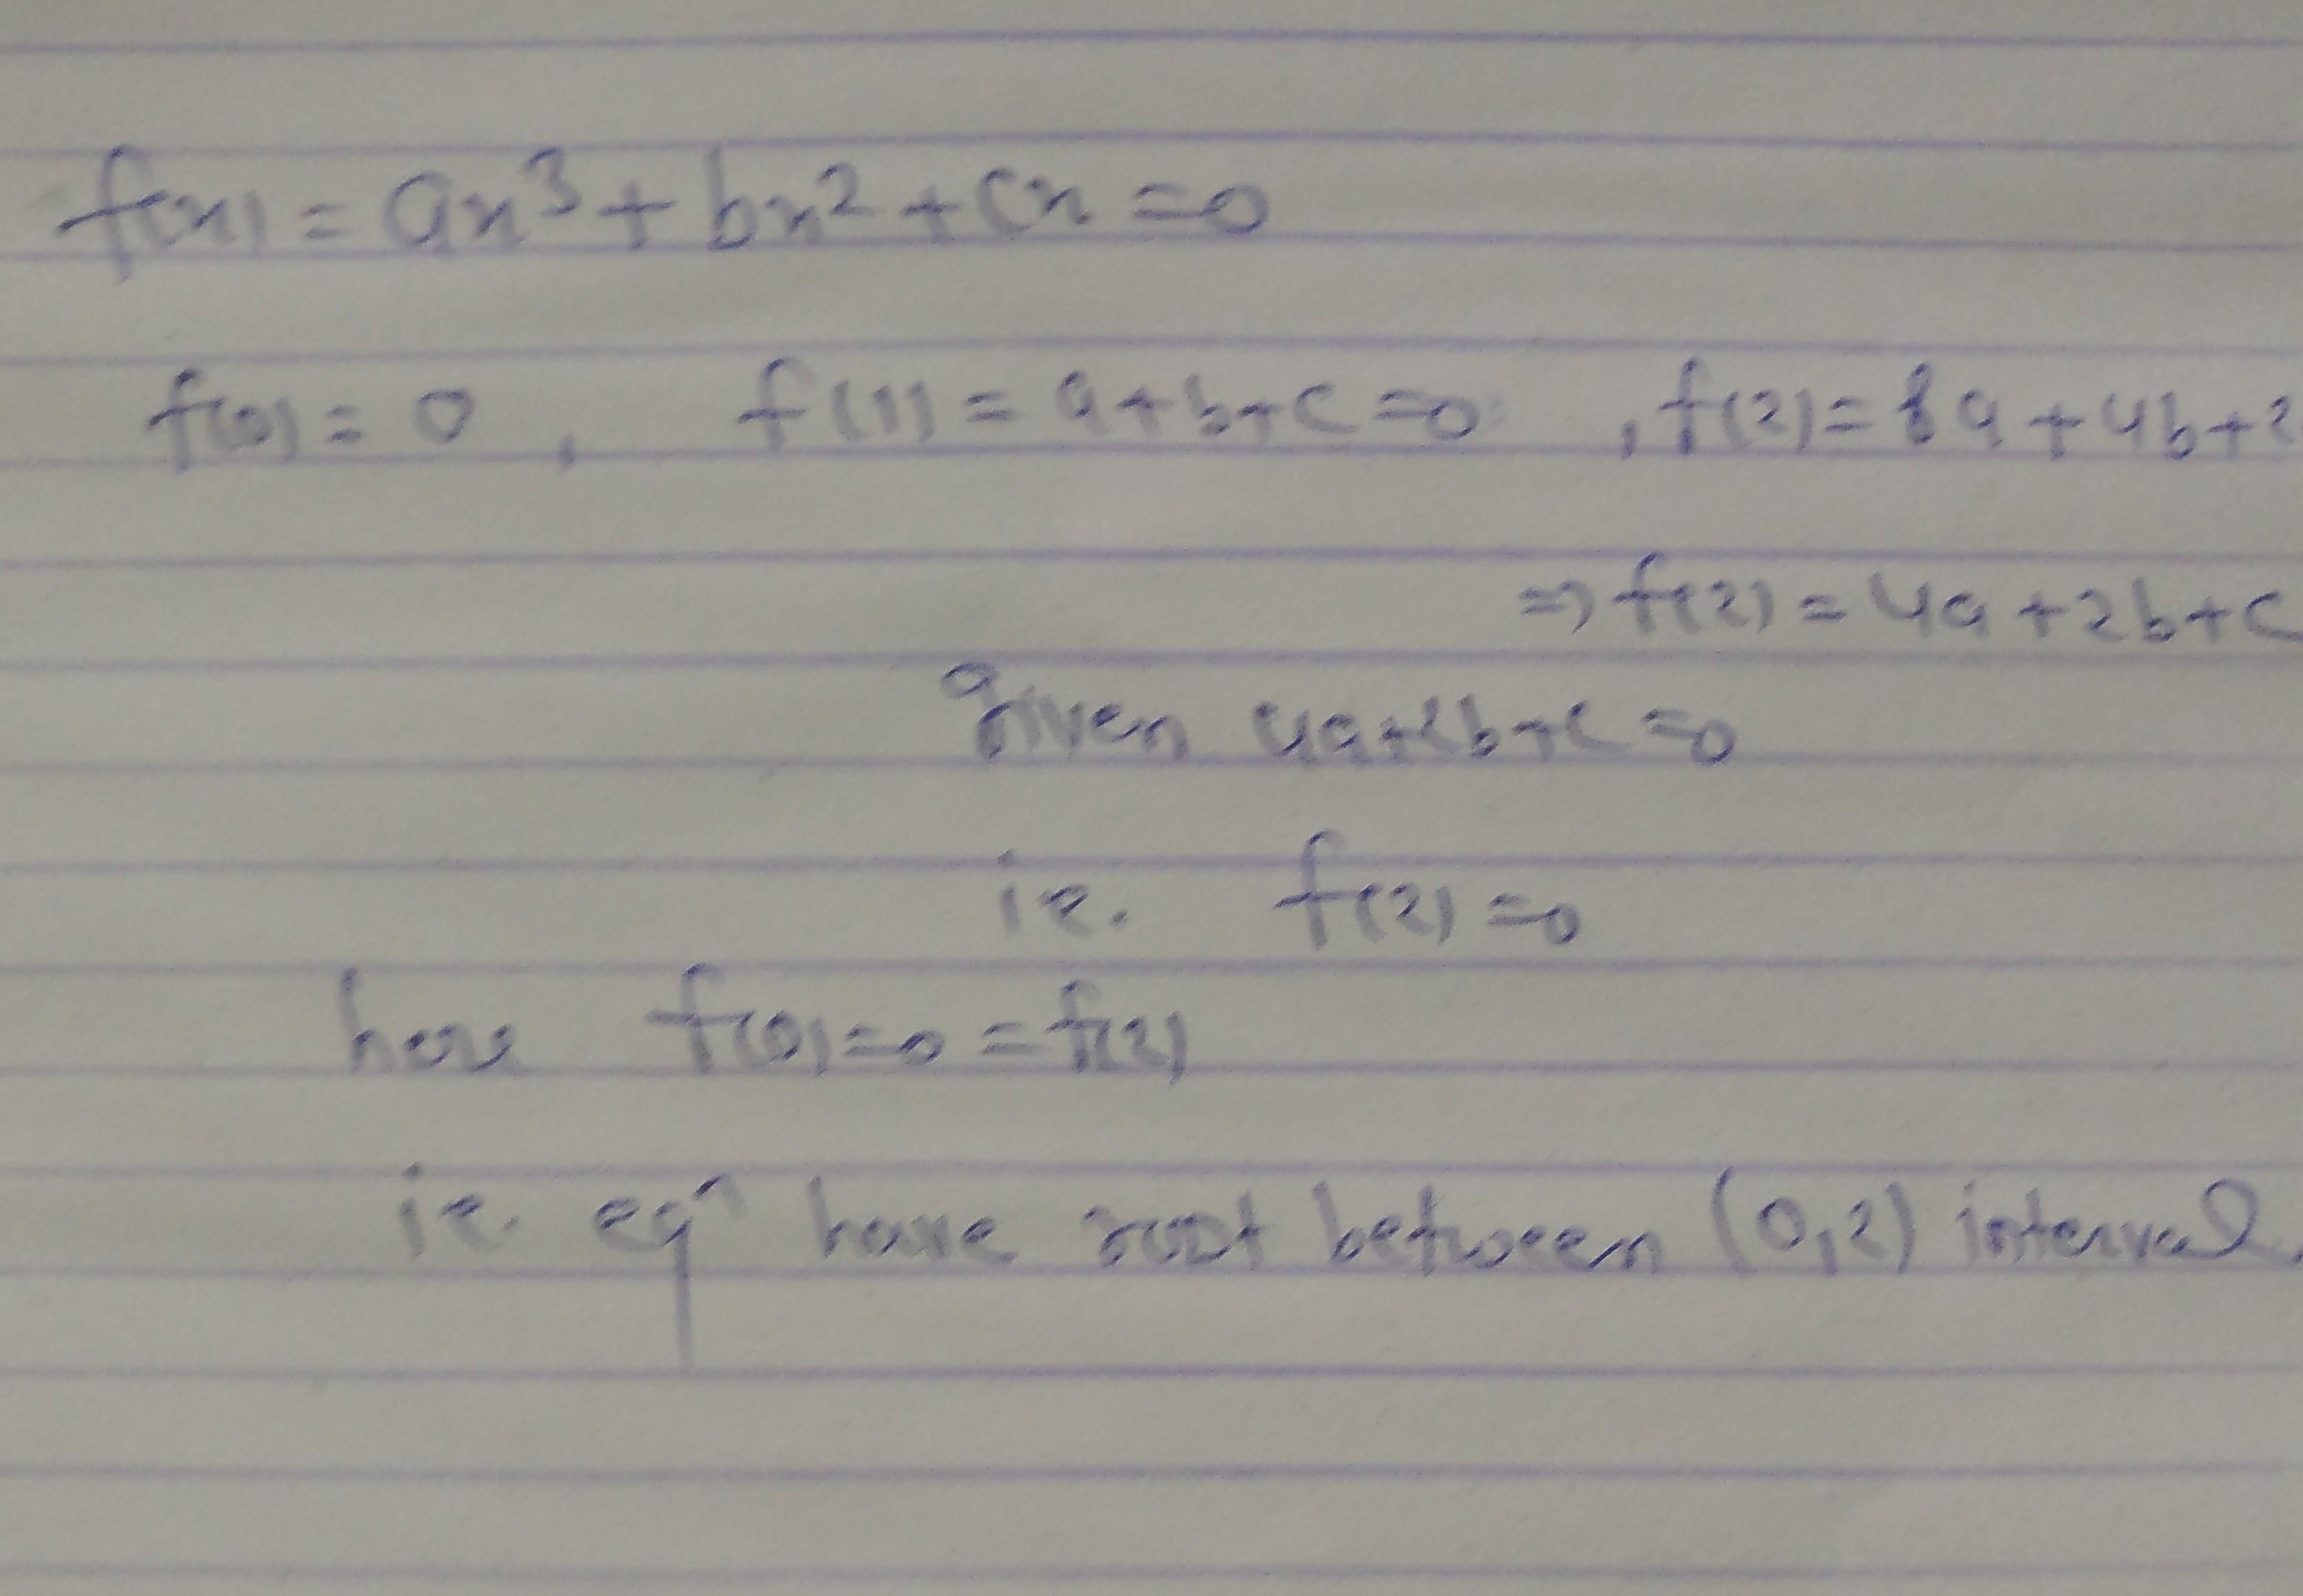 f(x) = ax³ + bx² + cx = 0
f(0) = 0 , f(1) = a+b+c = 0 , f(2) = 8a + 4b + 2
⇒ f(2) = 4a + 2b + c
given 4a+2b+c = 0
ie. f(2) = 0
here f(0) = 0 = f(2)
ie. eqⁿ have root between (0,2) interval.